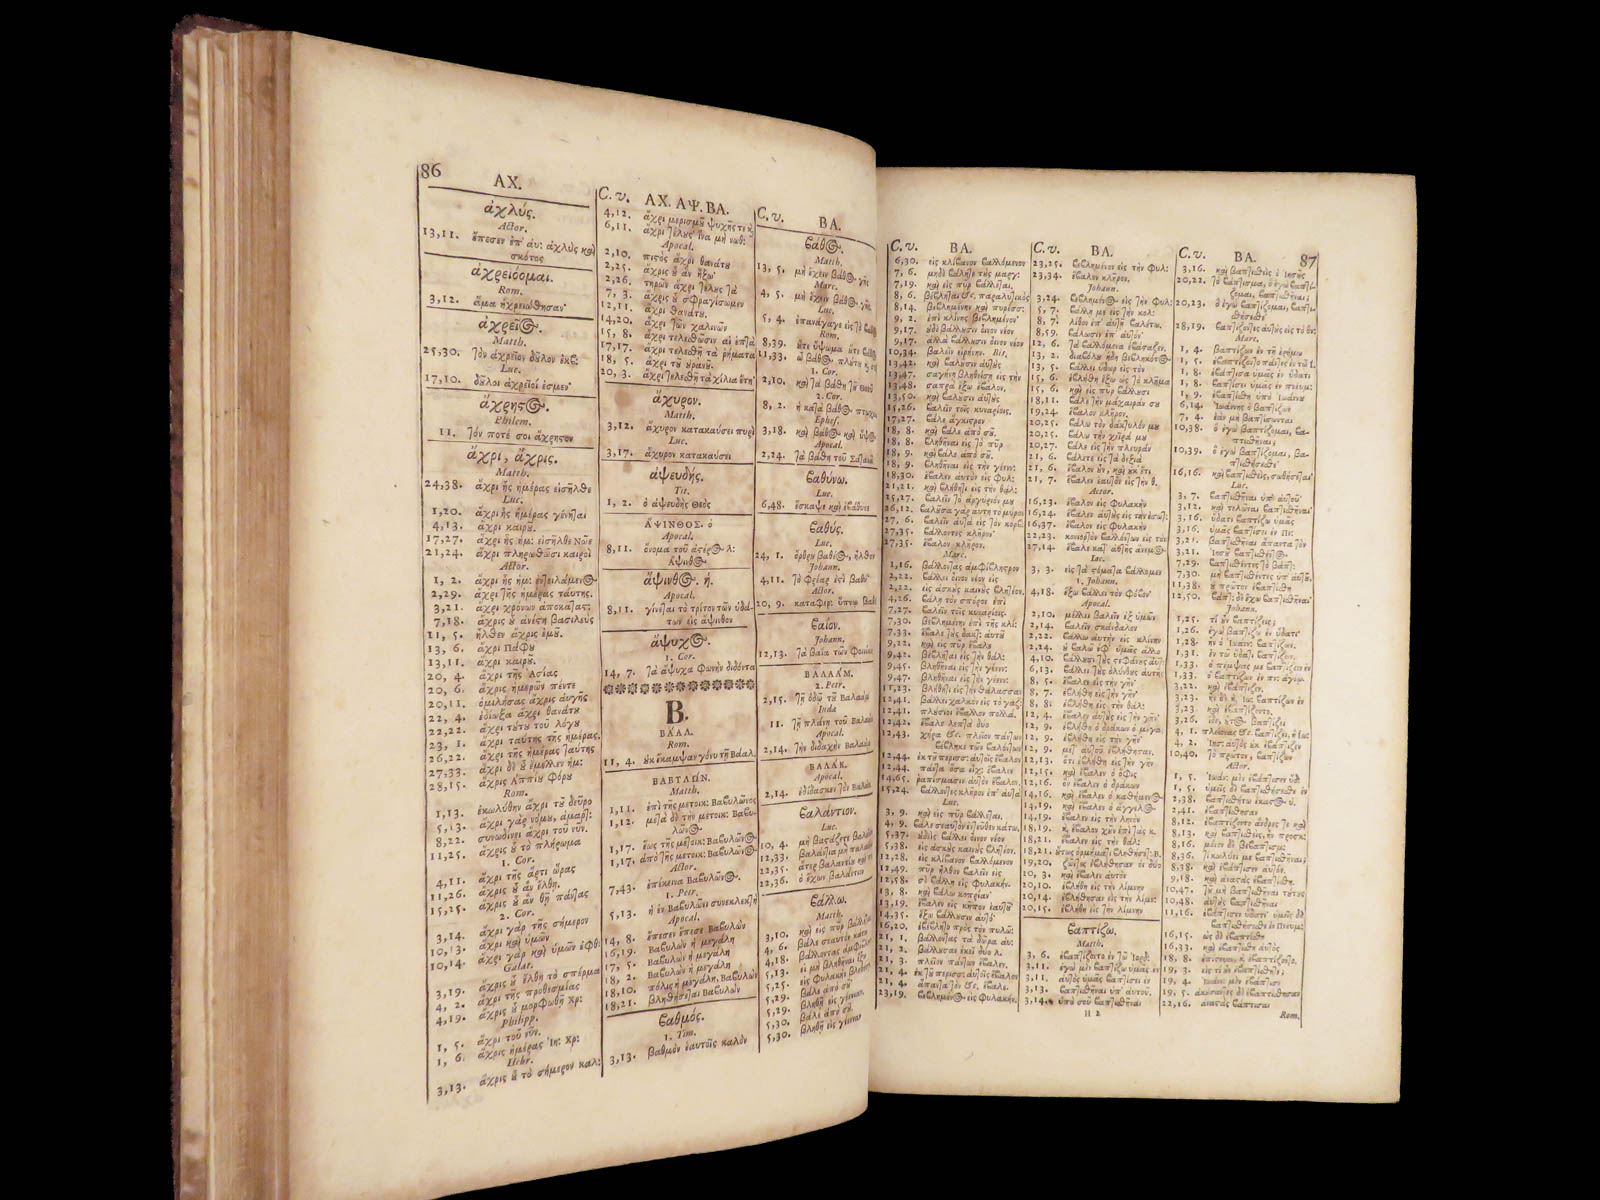 86
AX.
ἀχλύς.
Actor.
13,11. ἔπεσεν ἐπ' αυ: ἀχλὺς καὶ
σκότος
ἀχρειόομαι.
Rom.
3,12. ἅμα ἠχρειώθησαν·
ἀχρεῖος.
Matth.
25,30. τὸν ἀχρεῖον δοῦλον ἐκβ:
Luc.
17,10. δοῦλοι ἀχρεῖοί ἐσμεν·
ἄχρηστος.
Philem.
11. τόν ποτέ σοι ἄχρηστον
ἄχρι, ἄχρις.
Matth.
24,38. ἄχρι ἧς ἡμέρας εἰσῆλθε
Luc.
1,20. ἄχρι ἧς ἡμέρας γένηται
4,13. ἄχρι καιροῦ.
17,27. ἄχρι ἧς ἡμ: εἰσῆλθε Νῶε
21,24. ἄχρι πληρωθῶσι καιροὶ
Actor.
1, 2. ἄχρι ἧς ἡμ: ἐντειλάμενος
2,29. ἄχρι τῆς ἡμέρας ταύτης.
3,21. ἄχρι χρόνων ἀποκατας:
7,18. ἄχρις οὗ ἀνέστη βασιλεὺς
11, 5. ἦλθεν ἄχρις ἐμοῦ.
13, 6. ἄχρι Πάφου
13,11. ἄχρι καιροῦ.
20, 4. ἄχρι τῆς Ἀσίας
20, 6. ἄχρις ἡμερῶν πέντε
20,11. ὁμιλήσας ἄχρις αὐγῆς
22, 4. ἐδίωξα ἄχρι θανάτου
22,22. ἄχρι τούτου τοῦ λόγου
23, 1. ἄχρι ταύτης τῆς ἡμέρας.
26,22. ἄχρι τῆς ἡμέρας ταύτης
27,33. ἄχρι δὲ οὗ ἔμελλεν ἡμ:
28,15. ἄχρις Ἀππίου Φόρου
Rom.
1,13. ἐκωλύθην ἄχρι τοῦ δεῦρο
5,13. ἄχρι γὰρ νόμου, ἁμαρτ:
8,22. συνωδίνει ἄχρι τοῦ νῦν.
11,25. ἄχρις οὗ τὸ πλήρωμα
1. Cor.
4,11. ἄχρι τῆς ἄρτι ὥρας
11,26. ἄχρις οὗ ἂν ἔλθη.
15,25. ἄχρις οὗ ἂν θῇ πάντας
2. Cor.
3,14. ἄχρι γὰρ τῆς σήμερον
10,13. ἄχρι καὶ ὑμῶν
10,14. ἄχρι γὰρ καὶ ὑμῶν ἐφθ:
Galat.
3,19. ἄχρις οὗ ἔλθῃ τὸ σπέρμα
4, 2. ἄχρι τῆς προθεσμίας
4,19. ἄχρις οὗ μορφωθῇ χρ:
Philipp.
1, 5. ἄχρι τοῦ νῦν.
1, 6. ἄχρις ἡμέρας Ἰη: χρ:
Hebr.
3,13. ἄχρις οὗ τὸ σήμερον καλ:
C. v. AX. AΨ. BA.
4,12. ἄχρι μερισμοῦ ψυχῆς τε κ̣
6,11. ἄχρι τέλους ἵνα μὴ νωθ:
Apocal.
2,10. πιστὸς ἄχρι θανάτου
2,25. ἄχρις οὗ ἂν ἥξω·
2,26. τηρῶν ἄχρι τέλους τὰ
7, 3. ἄχρις οὗ σφραγίσωμεν
12,11. ἄχρι θανάτου.
14,20. ἄχρι τῶν χαλινῶν
15, 8. ἄχρι τελεσθῶσιν αἱ ἑπτὰ
17,17. ἄχρι τελεσθῇ τὰ ῥήματα
18, 5. ἄχρι τοῦ οὐρανοῦ.
20, 3. ἄχρι τελεσθῇ τὰ χίλια ἔτη·
ἄχυρον.
Matth.
3,12. ἄχυρον κατακαύσει πυρὶ
Luc.
3,17. ἄχυρον κατακαύσει
ἀψευδής.
Tit.
1, 2. ὁ ἀψευδὴς Θεὸς
ἈΨΙΝΘΟΣ. ὁ
Apocal.
8,11. ὄνομα τοῦ ἀστέρος λ:
Ἄψινθος
ἄψινθος. ἡ.
Apocal.
8,11. γίνεται τὸ τρίτον τῶν ὑδά-
των εἰς ἄψινθον
ἄψυχος.
1. Cor.
14, 7. τὰ ἄψυχα φωνὴν διδόντα
B.
ΒΆΑΛ.
Rom.
11, 4. οὐκ ἔκαμψαν γόνυ τῇ Βάαλ
ΒΑΒΥΛΏΝ.
Matth.
1,11. ἐπὶ τῆς μετοικ: Βαβυλῶνος
1,12. μετὰ δὲ τὴν μετοικ: Βαβυ-
λῶνος
1,17. ἕως τῆς μετοικ: Βαβυλῶνος
1,17. ἀπὸ τῆς μετοικ: Βαβυλῶνος
Actor.
7,43. ἐπέκεινα Βαβυλῶνος.
1. Petr.
5,13. ἡ ἐν Βαβυλῶνι συνεκλεκτὴ
Apocal.
14, 8. ἔπεσεν ἔπεσε Βαβυλὼν
16,19. Βαβυλὼν ἡ μεγάλη
17, 5. Βαβυλὼν ἡ μεγάλη
18, 2. Βαβυλὼν ἡ μεγάλη
18,10. πόλις ἡ μεγάλη, Βαβυλὼν
18,21. βληθήσεται Βαβυλὼν
βαθμός.
1. Tim.
3,13. βαθμὸν ἑαυτοῖς καλὸν
C. v. BA.
βάθος.
Matth.
13, 5. μὴ ἔχειν βάθος γῆς
Marc.
4, 5. μὴ ἔχειν βάθος γῆς
Luc.
5, 4. ἐπανάγαγε εἰς τὸ
Rom.
8,39. οὔτε ὕψωμα οὔτε
11,33. ὦ βάθος πλούτου
1. Cor.
2,10. καὶ τὰ βάθη τοῦ Θεοῦ
2. Cor.
8, 2. ἡ κατὰ βάθος
Ephes.
3,18. καὶ βάθος καὶ ὕψος
Apocal.
2,24. τὰ βάθη τοῦ Σατανᾶ
βαθύνω.
Luc.
6,48. ἔσκαψε καὶ ἐβάθυνε
βαθύς.
Luc.
24, 1. ὄρθρου βαθέος, ἦλθον
Johann.
4,11. τὸ φρέαρ ἐστὶ βαθύ·
Actor.
20, 9. καταφερ: ὕπνῳ βαθεῖ
βαΐον.
Johann.
12,13. τὰ βαΐα τῶν
ΒΑΛΑΆΜ.
2. Petr.
2,15. τῇ ὁδῷ τοῦ Βαλαὰμ
Juda
11. τῇ πλάνῃ τοῦ Βαλαὰμ
Apocal.
2,14. τὴν διδαχὴν Βαλαὰμ
ΒΑΛΆΚ.
Apocal.
2,14. ἐδίδασκεν τὸν Βαλὰκ
βαλάντιον.
Luc.
10, 4. μὴ βαστάζετε βαλάντιον
12,33. βαλάντια μὴ παλαιούμ
22,35. ἄτερ βαλαντίου καὶ
22,36. ὁ ἔχων βαλάντιον
βάλλω.
Matth.
3,10. καὶ εἰς πῦρ βάλλεται
4, 6. βάλε σεαυτὸν κάτω
4,18. βάλλοντας ἀμφίβλη
5,13. εἰ μὴ βληθῆναι ἔξω
5,25. εἰς φυλακὴν βληθήσῃ
5,29. βάλε ἀπὸ σοῦ·
5,29. βληθῇ εἰς γέενναν.
5,30. βάλε ἀπὸ σοῦ.
5,30. βληθῇ εἰς γέενναν
C. v. BA.
6,30. εἰς κλίβανον βαλλόμενον
7, 6. μηδὲ βάλητε τοὺς μαργ:
7,19. καὶ εἰς πῦρ βάλλεται.
8, 6. βέβληται &c. παραλυτικὸς
8,14. βεβλημένην καὶ πυρέσσ:
9, 2. ἐπὶ κλίνης βεβλημένον·
9,17. οὐδὲ βάλλουσιν οἶνον νέον
9,17. ἀλλὰ βάλλουσιν οἶνον νέον
10,34. βαλεῖν εἰρήνην. Bis.
13,42. καὶ βαλοῦσιν αὐτοὺς
13,47. σαγήνῃ βληθείσῃ εἰς τὴν
13,48. σαπρὰ ἔξω ἔβαλον.
13,50. καὶ βαλοῦσιν αὐτοὺς
15,26. βαλεῖν τοῖς κυναρίοις.
17,27. βάλε ἄγκιστρον
18, 8. καὶ βάλε ἀπὸ σοῦ.
18, 8. βληθῆναι εἰς τὸ πῦρ
18, 9. καὶ βάλε ἀπὸ σοῦ.
18, 9. βληθῆναι εἰς τὴν γέενν:
18,30. ἔβαλεν αὐτὸν εἰς φυλ:
21,21. καὶ βλήθητι εἰς τὴν θάλ:
25,27. βαλεῖν τὸ ἀργύριόν μου
26,12. βαλοῦσα γὰρ αὕτη τὸ μύρον
27, 6. βαλεῖν αὐτὰ εἰς τὸν κορβ:
27,35. βάλλοντες κλῆρον·
27,35. ἔβαλον κλῆρον.
Marc.
1,16. βάλλοντας ἀμφίβληστρον
2,22. βάλλει οἶνον νέον εἰς
2,22. εἰς ἀσκοὺς καινοὺς βλητέον.
4,26. βάλῃ τὸν σπόρον ἐπὶ
7,27. βαλεῖν τοῖς κυναρίοις.
7,30. βεβλημένην ἐπὶ τῆς κλί:
7,33. ἔβαλε τοὺς δακτ: αὐτοῦ
9,22. καὶ εἰς πῦρ ἔβαλε
9,42. βέβληται εἰς τὴν θάλ:
9,45. βληθῆναι εἰς τὴν γέενν:
9,47. βληθῆναι εἰς τὴν γέενν:
11,23. βλήθητι εἰς τὴν θάλασσαν
12,41. βάλλει χαλκὸν εἰς τὸ γαζ:
12,41. πλούσιοι ἔβαλλον πολλά.
12,42. ἔβαλε λεπτὰ δύο
12,43. χήρα &c. πλεῖον πάντων
βέβληκε τῶν βαλόντων
12,44. ἐκ τοῦ περισσ: αὐτοῖς ἔβαλον
12,44. πάντα ὅσα εἶχ: ἔβαλε
14,65. ῥαπίσμασιν αὐτὸν ἔβαλον.
15,24. βάλλοντες κλῆρον ἐπ' αὐτὰ
Luc.
3, 9. καὶ εἰς πῦρ βάλλεται.
4, 9. βάλε σεαυτὸν ἐντεῦθεν κάτω.
5,37. οὐδεὶς βάλλει οἶνον νέον
5,38. εἰς ἀσκοὺς καινοὺς βλητέον.
12,28. εἰς κλίβανον βαλλόμενον
12,49. πῦρ ἦλθον βαλεῖν εἰς
12,58. σὲ βάλλῃ εἰς φυλακήν.
13, 8. καὶ βάλω κοπρίαν·
13,19. ἔβαλεν εἰς κῆπον ἑαυτοῦ·
14,35. ἔξω βάλλουσιν αὐτό·
16,20. ἐβέβλητο πρὸς τὸν πυλῶ:
21, 1. βάλλοντας τὰ δῶρα αὐ:
21, 2. βάλλουσαν ἐκεῖ δύο λ.
21, 3. πλεῖον πάντων ἔβαλεν.
21, 4. ἐκ τοῦ περισσ: αὐτοῖς ἔβαλον
21, 4. ἅπαντα τὸν &c. ἔβαλε.
23,19. βεβλημένος εἰς φυλακήν.
C. v. BA.
23,25. βεβλημένον εἰς τὴν φυλ:
23,34. ἔβαλον κλῆρον.
Johann.
3,24. βεβλημένος εἰς τὴν φυλ:
5, 7. βάλλῃ με εἰς τὴν κολ:
8, 7. λίθον ἐπ' αὐτῇ βαλέτω.
8,59. βάλωσιν ἐπ' αὐτόν·
12, 6. τὰ βαλλόμενα ἐβάσταζεν.
13, 2. διαβόλου ἤδη βεβληκότος
13, 5. βάλλει ὕδωρ εἰς τὸν
15, 6. ἐβλήθη ἔξω ὡς τὸ κλῆμα
15, 6. καὶ εἰς πῦρ βάλλουσι
18,11. βάλε τὴν μάχαιράν σου
19,24. ἔβαλον κλῆρον.
20,25. βάλω τὸν δάκτυλόν μου
20,25. βάλω τὴν χεῖρά μου
20,27. βάλε εἰς τὴν πλευράν
21, 6. βάλετε εἰς τὰ δεξιὰ
21, 6. ἔβαλον οὖν, καὶ οὐκ ἔτι
21, 7. ἔβαλεν ἑαυτὸν εἰς τὴν θ.
Actor.
16,23. ἔβαλον εἰς φυλακὴν
16,24. ἔβαλεν αὐτοὺς εἰς τὴν ἐσωτ:
16,37. ἔβαλον εἰς φυλακὴν
22,23. κονιορτὸν βαλλόντων εἰς τὸν
27,14. ἔβαλε κατ' αὐτῆς ἄνεμος
Jac.
3, 3. εἰς τὰ στόματα βάλλομεν
1. Johann.
4,18. ἔξω βάλλει τὸν φόβον·
Apocal.
2,10. μέλλει βαλεῖν ἐξ ὑμῶν
2,14. βαλεῖν σκάνδαλον
2,22. βάλλω αὐτὴν εἰς κλίνην
2,24. οὐ βαλῶ ἐφ' ὑμᾶς ἄλλο
4,10. βάλλουσι τοὺς στεφάνους αὐτ:
6,13. βάλλει τοὺς ὀλύνθους αὑτῆς
8, 5. ἔβαλεν εἰς τὴν γῆν·
8, 7. ἐβλήθη εἰς τὴν γῆν·
8, 8. ἐβλήθη εἰς τὴν θάλ:
12, 4. ἔβαλεν αὐτοὺς εἰς τὴν γῆν·
12, 9. ἐβλήθη ὁ δράκων ὁ μέγα:
12, 9. ἐβλήθη εἰς τὴν γῆν·
12, 9. μετ' αὐτοῦ ἐβλήθησαν.
12,13. ὅτι ἐβλήθη εἰς τὴν γῆν
12,15. καὶ ἔβαλεν ὁ ὄφις
12,16. ὃν ἔβαλεν ὁ δράκων
14,16. καὶ ἔβαλεν ὁ καθήμενος
14,19. καὶ ἔβαλεν ὁ ἄγγελος
14,19. ἔβαλεν εἰς τὴν ληνὸν
18,19. κ̣ ἔβαλον χοῦν ἐπὶ τὰς κ.
18,21. ἔβαλεν εἰς τὴν θάλ:
18,21. οὕτως ὁρμήματι βληθήσετ: Β.
19,20. ζῶντες ἐβλήθησαν οἱ δύο
20, 3. καὶ ἔβαλεν αὐτὸν
20,10. ἐβλήθη εἰς τὴν λίμνην
20,14. ἐβλήθησαν εἰς τὴν λίμν:
20,15. ἐβλήθη εἰς τὴν λίμνην
βαπτίζω.
Matth.
3, 6. ἐβαπτίζοντο ἐν τῷ Ἰορδ:
3,11. ἐγὼ μὲν βαπτίζω ὑμᾶς ἐν
3,11. αὐτὸς ὑμᾶς βαπτίσει ἐν
3,13. βαπτισθῆναι ὑπ' αὐτοῦ.
3,14. ὑπὸ σοῦ βαπτισθῆναι
H 2
C. v. BA. 87
3,16. καὶ βαπτισθεὶς ὁ Ἰησοῦς
20,22. τὸ βάπτισμα, ὃ ἐγὼ βαπτί-
ζομαι, βαπτισθῆναι;
20,23. ὃ ἐγὼ βαπτίζομαι, βαπτι-
σθήσεσθε·
28,19. βαπτίζοντες αὐτοὺς εἰς τὸ ὄν:
Marc.
1, 4. βαπτίζων ἐν τῇ ἐρήμῳ
1, 5. ἐβαπτίζοντο πάντες ἐν τῷ Ἰ.
1, 8. ἐβάπτισα ὑμᾶς ἐν ὕδατι·
1, 8. βαπτίσει ὑμᾶς ἐν πνεύμ:
1, 9. ἐβαπτίσθη ὑπὸ Ἰωάννου
6,14. Ἰωάννης ὁ βαπτίζων
7, 4. ἐὰν μὴ βαπτίσωνται
10,38. ὃ ἐγὼ βαπτίζομαι, βα-
πτισθῆναι;
10,39. ὃ ἐγὼ βαπτίζομαι, βα-
πτισθήσεσθε·
16,16. καὶ βαπτισθεὶς, σωθήσεται·
Luc.
3, 7. βαπτισθῆναι ὑπ' αὐτοῦ·
3,12. καὶ τελῶναι βαπτισθῆναι·
3,16. ὕδατι βαπτίζω ὑμᾶς
3,16. ὑμᾶς βαπτίσει ἐν πν:
3,21. βαπτισθῆναι ἅπαντα τὸν
3,21. Ἰησοῦ βαπτισθέντος
7,29. βαπτισθέντες τὸ βάπτ:
7,30. μὴ βαπτισθέντες ὑπ' αὐτοῦ.
11,38. οὐ πρῶτον ἐβαπτίσθη
12,50. βάπτ: δὲ ἔχω βαπτισθῆναι·
Johann.
1,25. τί οὖν βαπτίζεις;
1,26. ἐγὼ βαπτίζω ἐν ὕδατι·
1,28. ἦν ὁ Ἰωάνν: βαπτίζων.
1,31. ἐν τῷ ὕδατι βαπτίζων.
1,33. ὁ πέμψας με βαπτίζειν ἐν
1,33. ὁ βαπτίζων ἐν πν: ἁγίῳ.
3,22. καὶ ἐβάπτιζεν.
3,23. ἦν δὲ κ̣ Ἰω: βαπτίζων ἐν
3,23. καὶ ἐβαπτίζοντο.
3,26. ἴδε, οὗτος βαπτίζει
4, 1. πλείονας &c. βαπτίζει, ἢ Ἰωα
4, 2. Ἰησ: αὐτὸς οὐκ ἐβάπτιζεν
10,40. τὸ πρῶτον βαπτίζων·
Actor.
1, 5. Ἰωάν: μὲν ἐβάπτισεν ὕδ:
1, 5. ὑμεῖς δὲ βαπτισθήσεσθε ἐν
2,38. βαπτισθήτω ἕκαστος ὑ.
2,41. ἐβαπτίσθησαν
8,12. ἐβαπτίζοντο ἄνδρες τε καὶ
8,13. καὶ βαπτισθεὶς, ἦν προσκ:
8,16. μόνον δὲ βεβαπτισμ:
8,36. τί κωλύει με βαπτισθῆναι;
8,38. καὶ ἐβάπτισεν αὐτόν.
9,18. καὶ ἀναστὰς ἐβαπτίσθη.
10,47. τοῦ μὴ βαπτισθῆναι τούτους
10,48. αὐτοὺς βαπτισθῆναι
11,16. ἐβάπτισεν ὕδατι· ὑμεῖς δὲ
βαπτισθήσεσθε ἐν πνεύματι
16,15. ὡς δὲ ἐβαπτίσθη
16,33. καὶ ἐβαπτίσθη αὐτὸς
18, 8. ἐπίστευον, κ̣ ἐβαπτίζοντο.
19, 3. εἰς τί οὖν ἐβαπτίσθητε;
19, 4. Ἰωάν: μὲν ἐβάπτισεν
19, 5. ἀκούσαντες δὲ ἐβαπτίσθησαν
22,16. ἀναστὰς βάπτισαι
Rom.